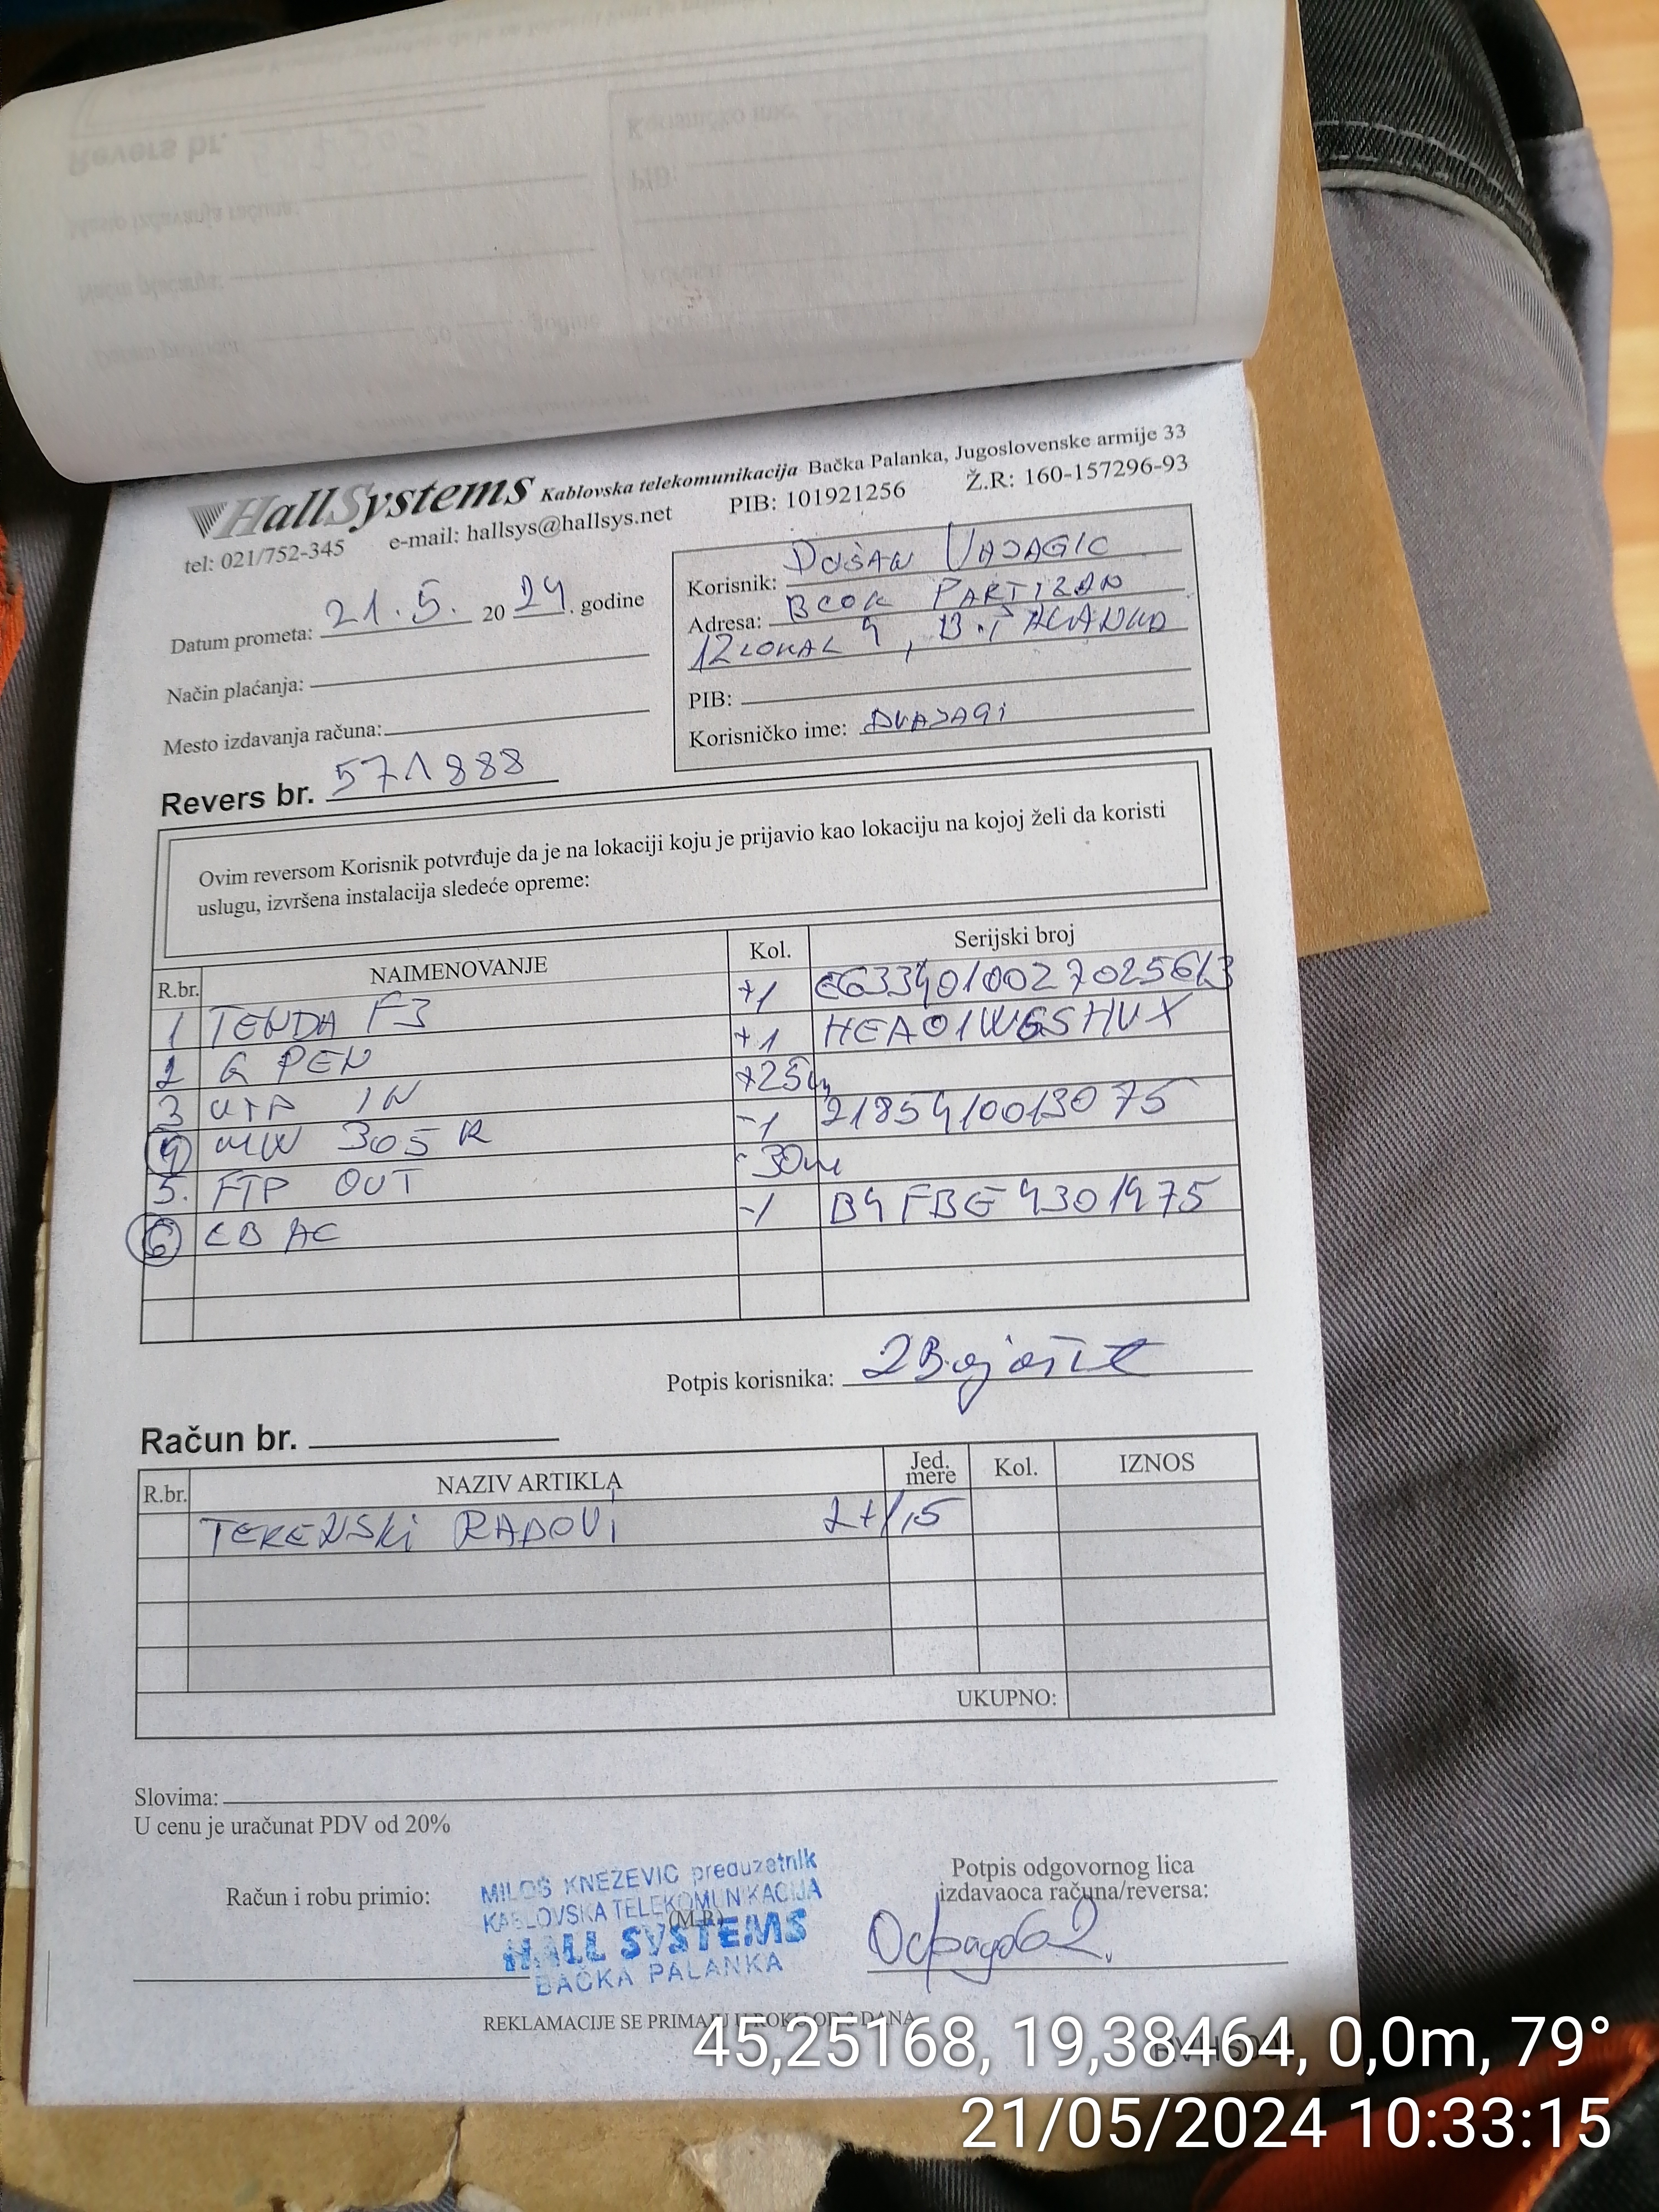 HallSystems Kablovska telekomunikacija Bačka Palanka, Jugoslovenske armije 33
tel: 021/752-345 e-mail: hallsys@hallsys.net PIB: 101921256 Ž.R: 160-157296-93
Datum prometa: 21.5. 20 24. godine
Način plaćanja:
Mesto izdavanja računa:
Korisnik: DUŠAN VAJAGIĆ
Adresa: BLOK PARTIZAN
12 LOKAL 4, B. PALANKA
PIB:
Korisničko ime: DVAJAGI
Revers br. 571888
Ovim reversom Korisnik potvrđuje da je na lokaciji koju je prijavio kao lokaciju na kojoj želi da koristi
uslugu, izvršena instalacija sledeće opreme:
R.br. NAIMENOVANJE Kol. Serijski broj
1 TENDA F3 +1 E6334010027025613
2 G PEN +1 HEA01WGSHUX
3 UTP IN +25m
4 MW 305 R -1 2185410013075
5. FTP OUT -30m
6 LB AC -1 B4FBE4301475
Potpis korisnika:
Račun br.
R.br. NAZIV ARTIKLA Jed. mere Kol. IZNOS
TERENSKI RADOVI 2+1,5
UKUPNO:
Slovima:
U cenu je uračunat PDV od 20%
Račun i robu primio:
MILOŠ KNEŽEVIĆ preduzetnik
KABLOVSKA TELEKOMUNIKACIJA
(M.P.)
HALL SYSTEMS
BAČKA PALANKA
Potpis odgovornog lica
izdavaoca računa/reversa:
REKLAMACIJE SE PRIMAJU U ROKU OD 3 DANA
45,25168, 19,38464, 0,0m, 79°
21/05/2024 10:33:15